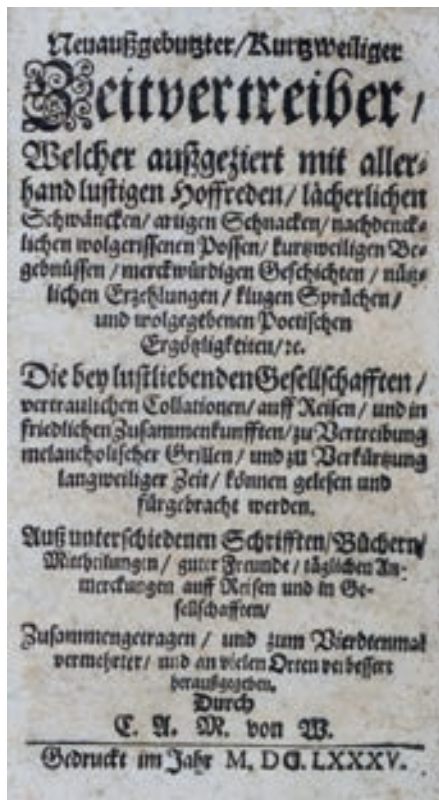 Neuaußgebutzter/Kurtzweiliger
Zeitvertreiber/
Welcher außgeziert mit aller-
hand lustigen Hoffreden/ lächerlichen
Schwäncken/ artigen Schnacken/ nachdenck-
lichen wolgerissenen Possen/ kurtzweiligen Be-
gebnüssen/ merckwürdigen Geschichten/ nütz-
lichen Erzehlungen/ klugen Sprüchen/
und wolgegebenen Poetischen
Ergötzligkeiten/ ꝛc.
Die bey lustliebenden Gesellschafften/
vertraulichen Collationen/ auff Reisen/ und in
friedlichen Zusammenkunfften/ zu Vertreibung
melancholischer Grillen/ und zu Verkürtzung
langweiliger Zeit/ können gelesen und
fürgebracht werden.
Auß unterschiedenen Schrifften/ Büchern/
Mittheilungen/ guter Freunde/ täglichen An-
merckungen auff Reisen und in Ge-
sellschafften/
Zusammengetragen/ und zum Vierdtenmal
vermehrter/ und an vielen Orten verbessert
heraußgegeben.
Durch
C. A. M. von W.
Gedruckt im Jahr M. DC. LXXXV.